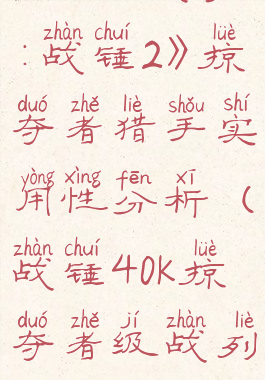 zhàn chuí lüè
：战锤2》掠
duó zhě liè shǒu shí
夺者猎手实
yòng xìng fēn xī
用性分析（
zhàn chuí lüè
战锤40K掠
duó zhě jí zhàn liè
夺者级战列